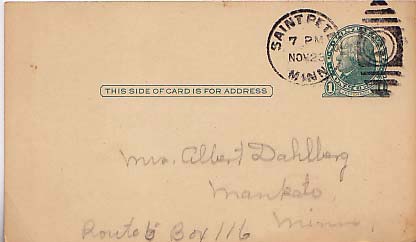 SAINT PETE
7 PM
NOV 23
MINN
1
THIS SIDE OF CARD IS FOR ADDRESS
Mrs. Albert Dahlberg
Mankato,
Route 5 Box 116 Minn.